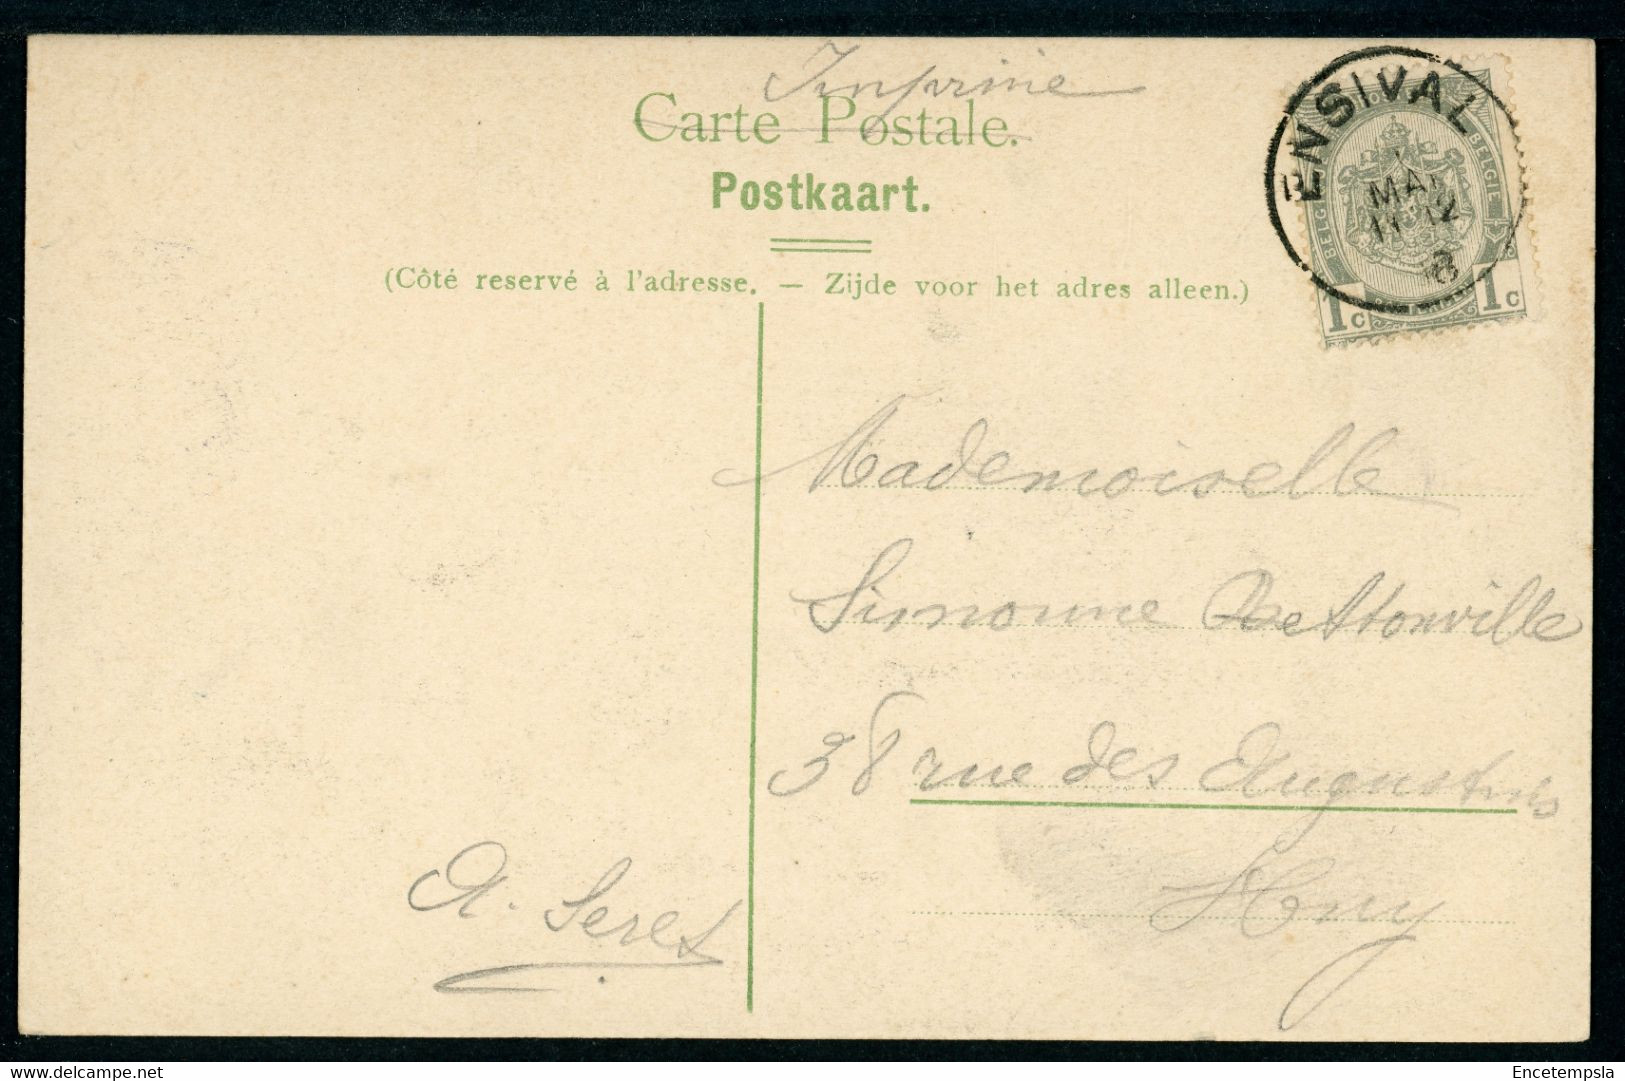 Imprimé
Carte Postale.
Postkaart.
(Côté reservé à l'adresse. — Zijde voor het adres alleen.)
ENSIVAL
11-12
8
BELGIE
1 c 1 c
Mademoiselle
Simonne Rettonville
38 rue des Augustins
Huy
A. Seret
delcampe.net
Encetempsla